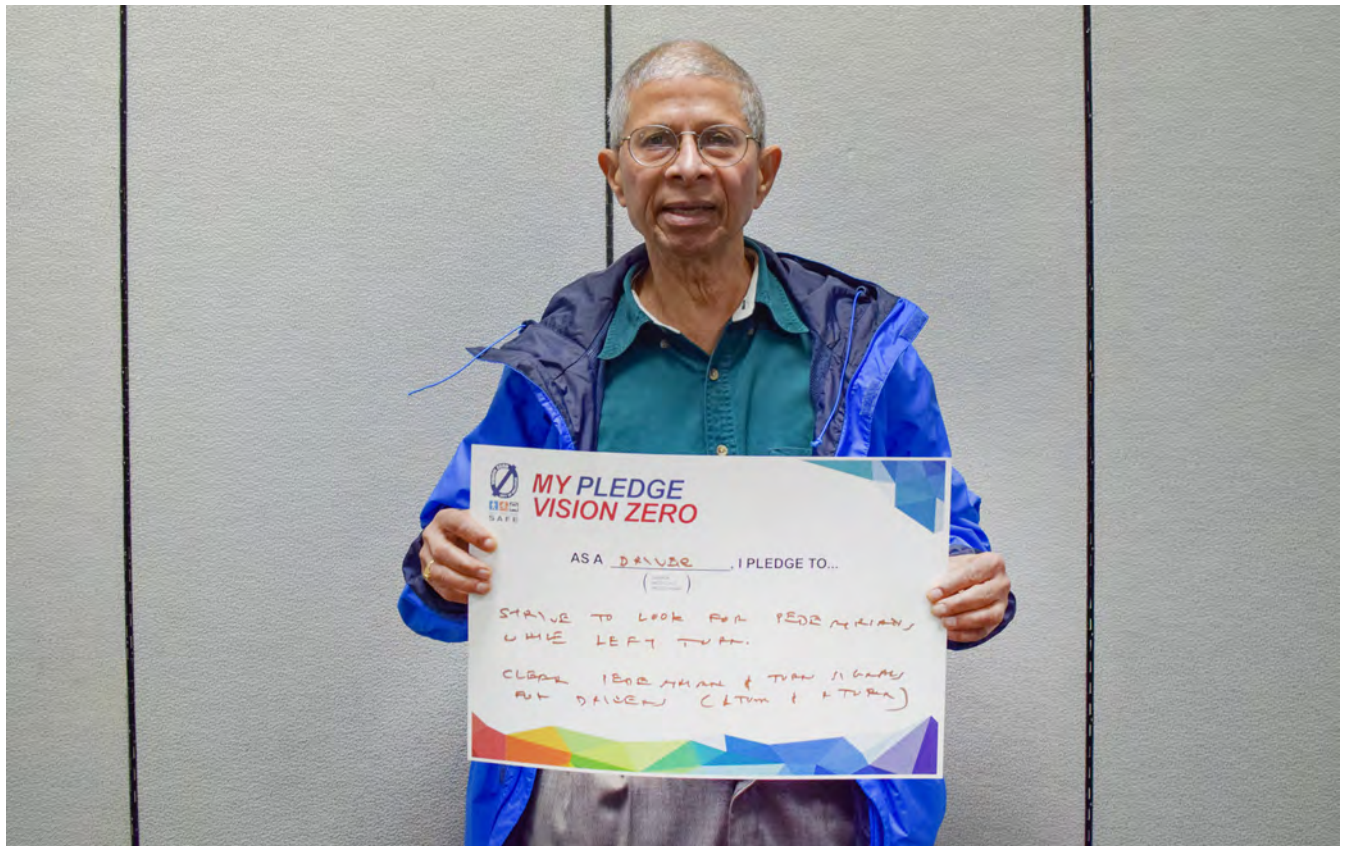 SAFE
MY PLEDGE
VISION ZERO
AS A DRIVER, I PLEDGE TO...
STRIVE TO LOOK FOR PEDESTRIANS
WHILE LEFT TURN.
CLEAR PEDESTRIAN & TURN SIGNALS
FOR DRIVERS (L TURN & R TURN)